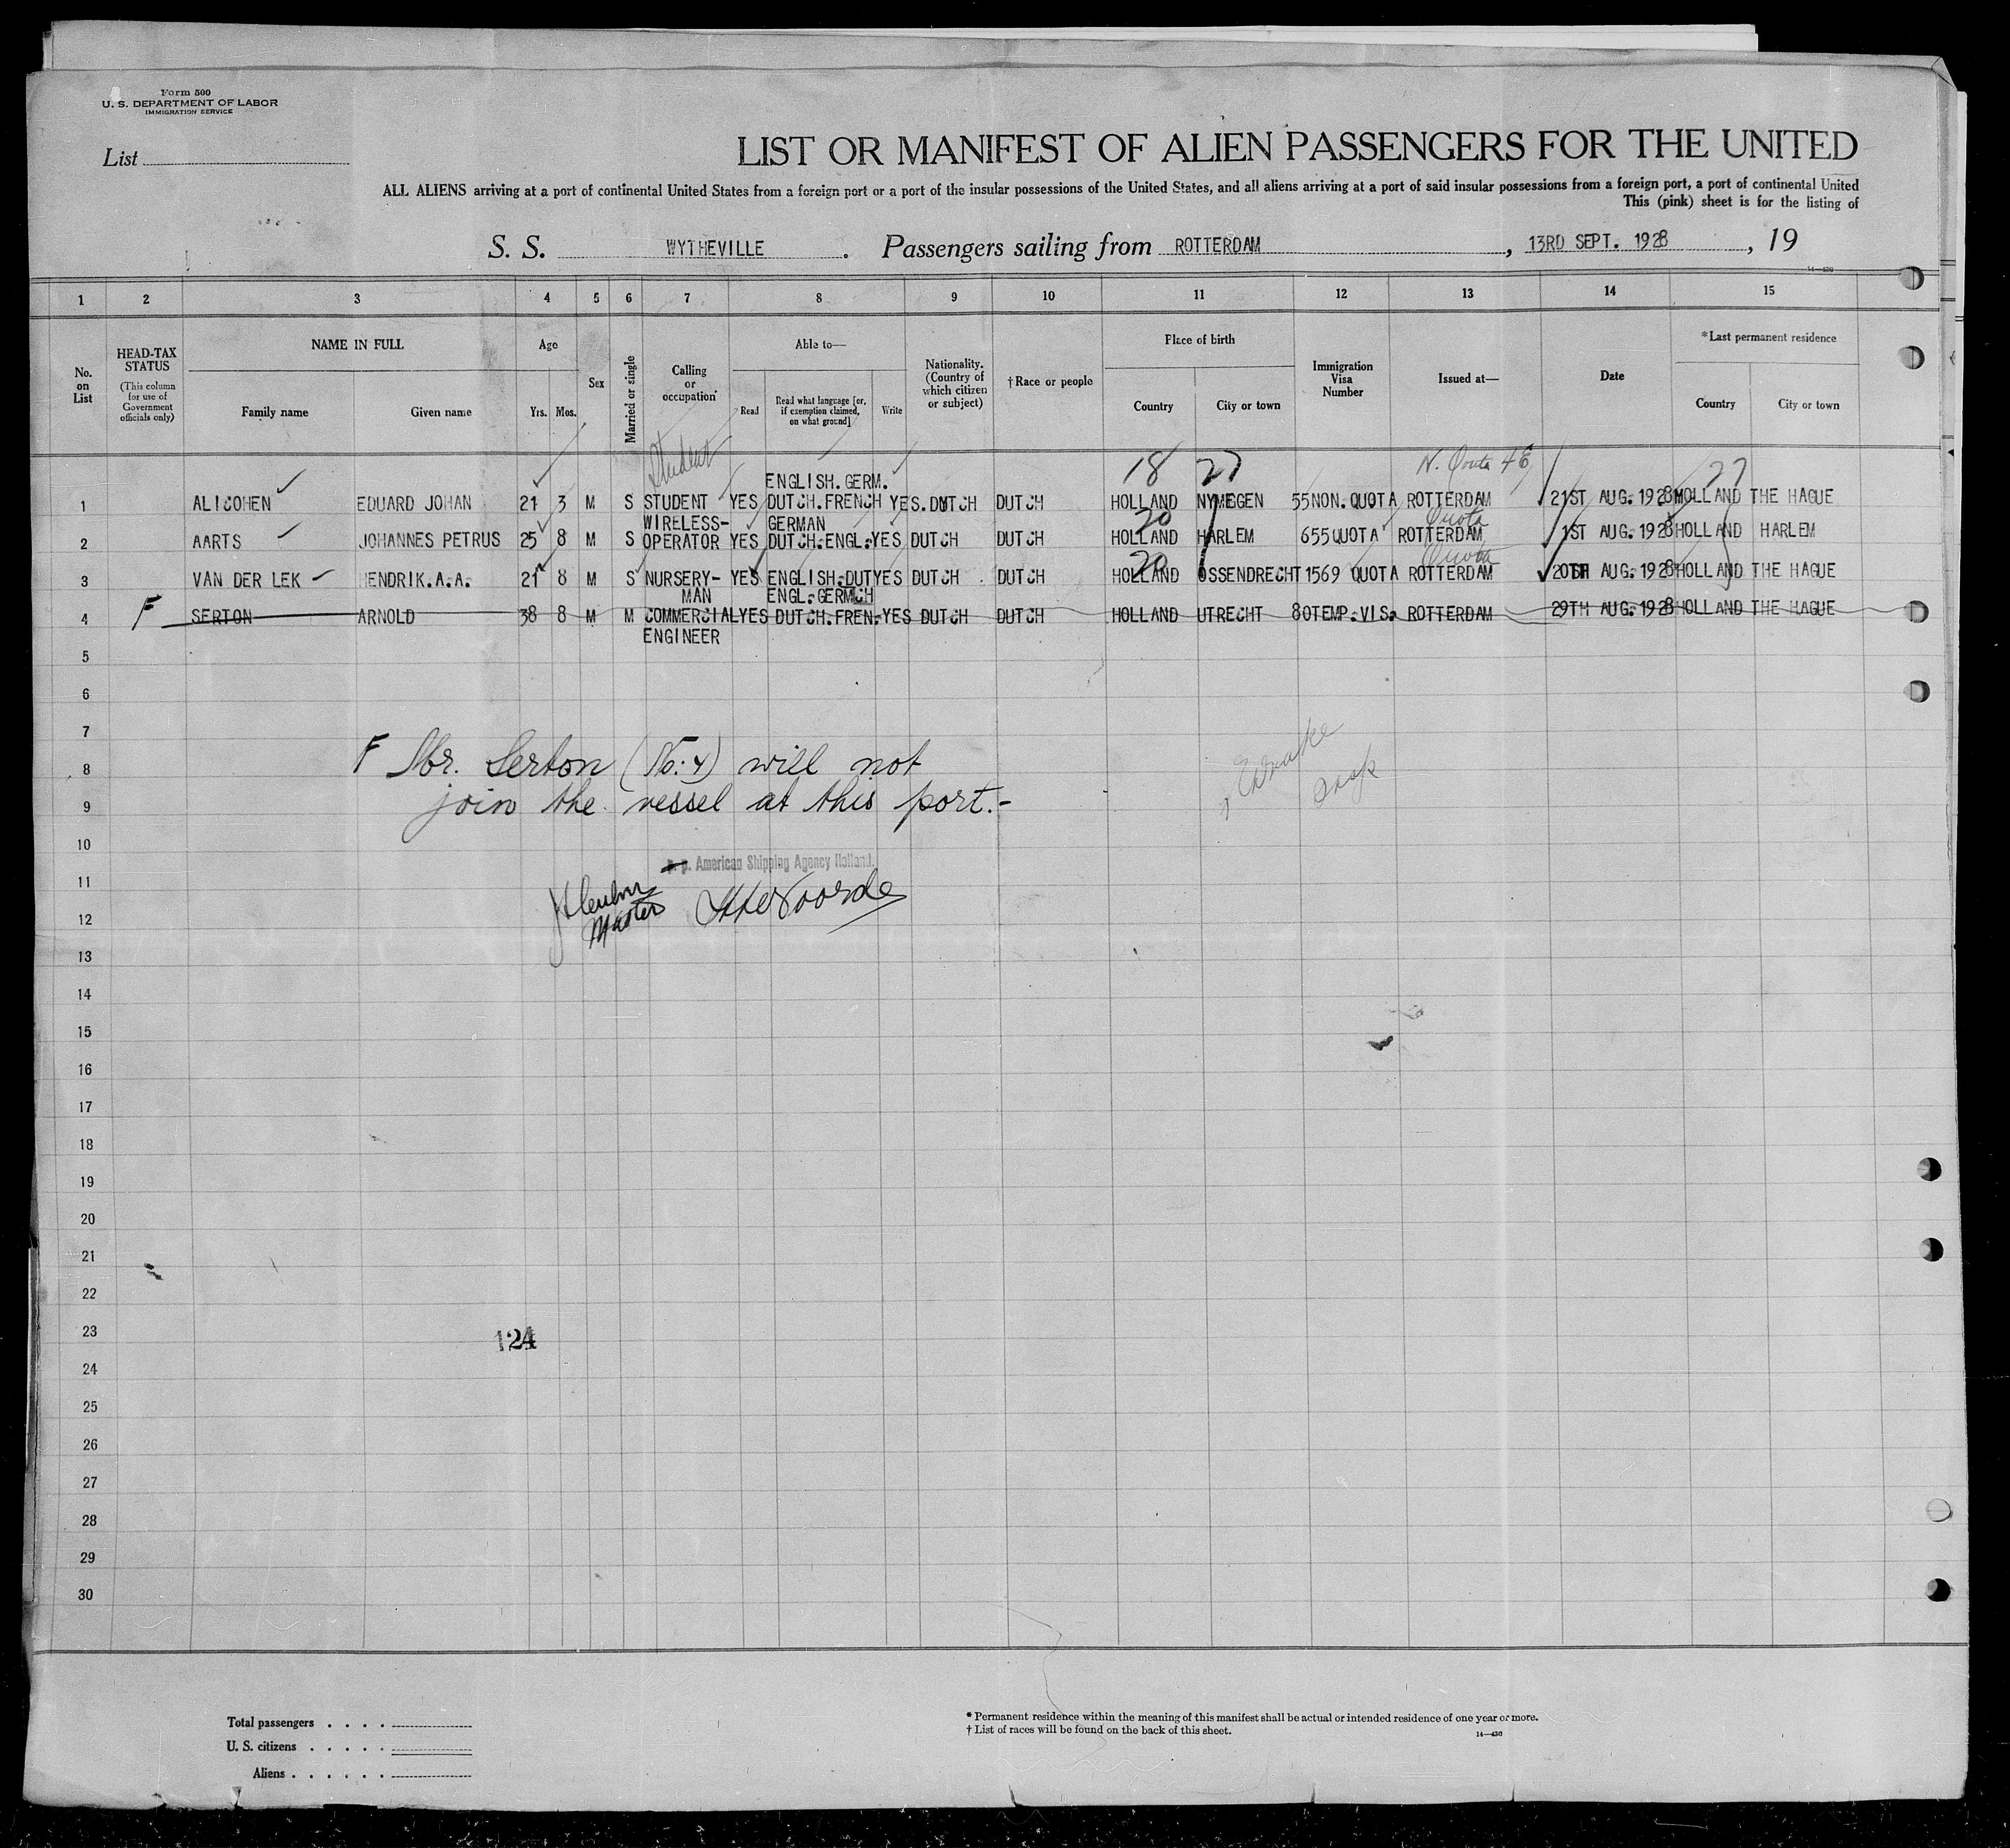 Form 500
U. S. DEPARTMENT OF LABOR
IMMIGRATION SERVICE
List
LIST OR MANIFEST OF ALIEN PASSENGERS FOR THE UNITED
ALL ALIENS arriving at a port of continental United States from a foreign port or a port of the insular possessions of the United States, and all aliens arriving at a port of said insular possessions from a foreign port, a port of continental United
This (pink) sheet is for the listing of
S. S. WYTHEVILLE . Passengers sailing from ROTTERDAM , 13RD SEPT. 1928 , 19
14—430
1 2 3 4 5 6 7 8 9 10 11 12 13 14 15
No. on List
HEAD-TAX STATUS
(This column for use of Government officials only)
NAME IN FULL
Family name Given name
Age
Yrs. Mos.
Sex
Married or single
Calling or occupation
Able to—
Read
Read what language [or, if exemption claimed, on what ground]
Write
Nationality. (Country of which citizen or subject)
†Race or people
Place of birth
Country City or town
Immigration Visa Number
Issued at—
Date
*Last permanent residence
Country City or town
Student 18 27 N. Quota 4E 27
ENGLISH.GERM.
1 ALICOHEN EDUARD JOHAN 21 3 M S STUDENT YES DUTCH.FRENCH YES.DUTCH DUTCH HOLLAND NYMEGEN 55NON.QUOTA ROTTERDAM 21ST AUG.1928 HOLLAND THE HAGUE
WIRELESS- GERMAN 20 Quota
2 AARTS JOHANNES PETRUS 25 8 M S OPERATOR YES DUTCH.ENGL.YES DUTCH DUTCH HOLLAND HARLEM 655QUOTA ROTTERDAM 1ST AUG.1928 HOLLAND HARLEM
20 Quota
3 VAN DER LEK HENDRIK.A.A. 21 8 M S NURSERY- YES ENGLISH.DUTYES DUTCH . DUTCH HOLLAND OSSENDRECHT 1569 QUOTA ROTTERDAM 20TH AUG.1928 HOLLAND THE HAGUE
MAN ENGL.GERMCH
F 4 SERTON ARNOLD 38 8 M M COMMERCIALYES DUTCH.FREN.YES DUTCH DUTCH HOLLAND UTRECHT 80TEMP.VIS. ROTTERDAM 29TH AUG.1928 HOLLAND THE HAGUE
ENGINEER
5
6
7
F Mr. Serton (No: 4) will not
8
join the vessel at this port.-
9
10
p. p. American Shipping Agency Holland.
11
Master
12
13
14
15
16
17
18
19
20
21
22
23
124
24
25
26
27
28
29
30
Total passengers . . . .
U. S. citizens . . . . .
Aliens . . . . . .
* Permanent residence within the meaning of this manifest shall be actual or intended residence of one year or more.
† List of races will be found on the back of this sheet.
14—430